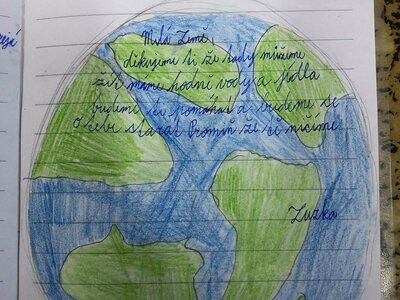 Milá Země,
děkujeme ti že tady můžeme
žít máme hodně vody a jídla
budeme ti pomáhat a budeme se
o tebe starat Promiň že tě ničíme.
Zuzka